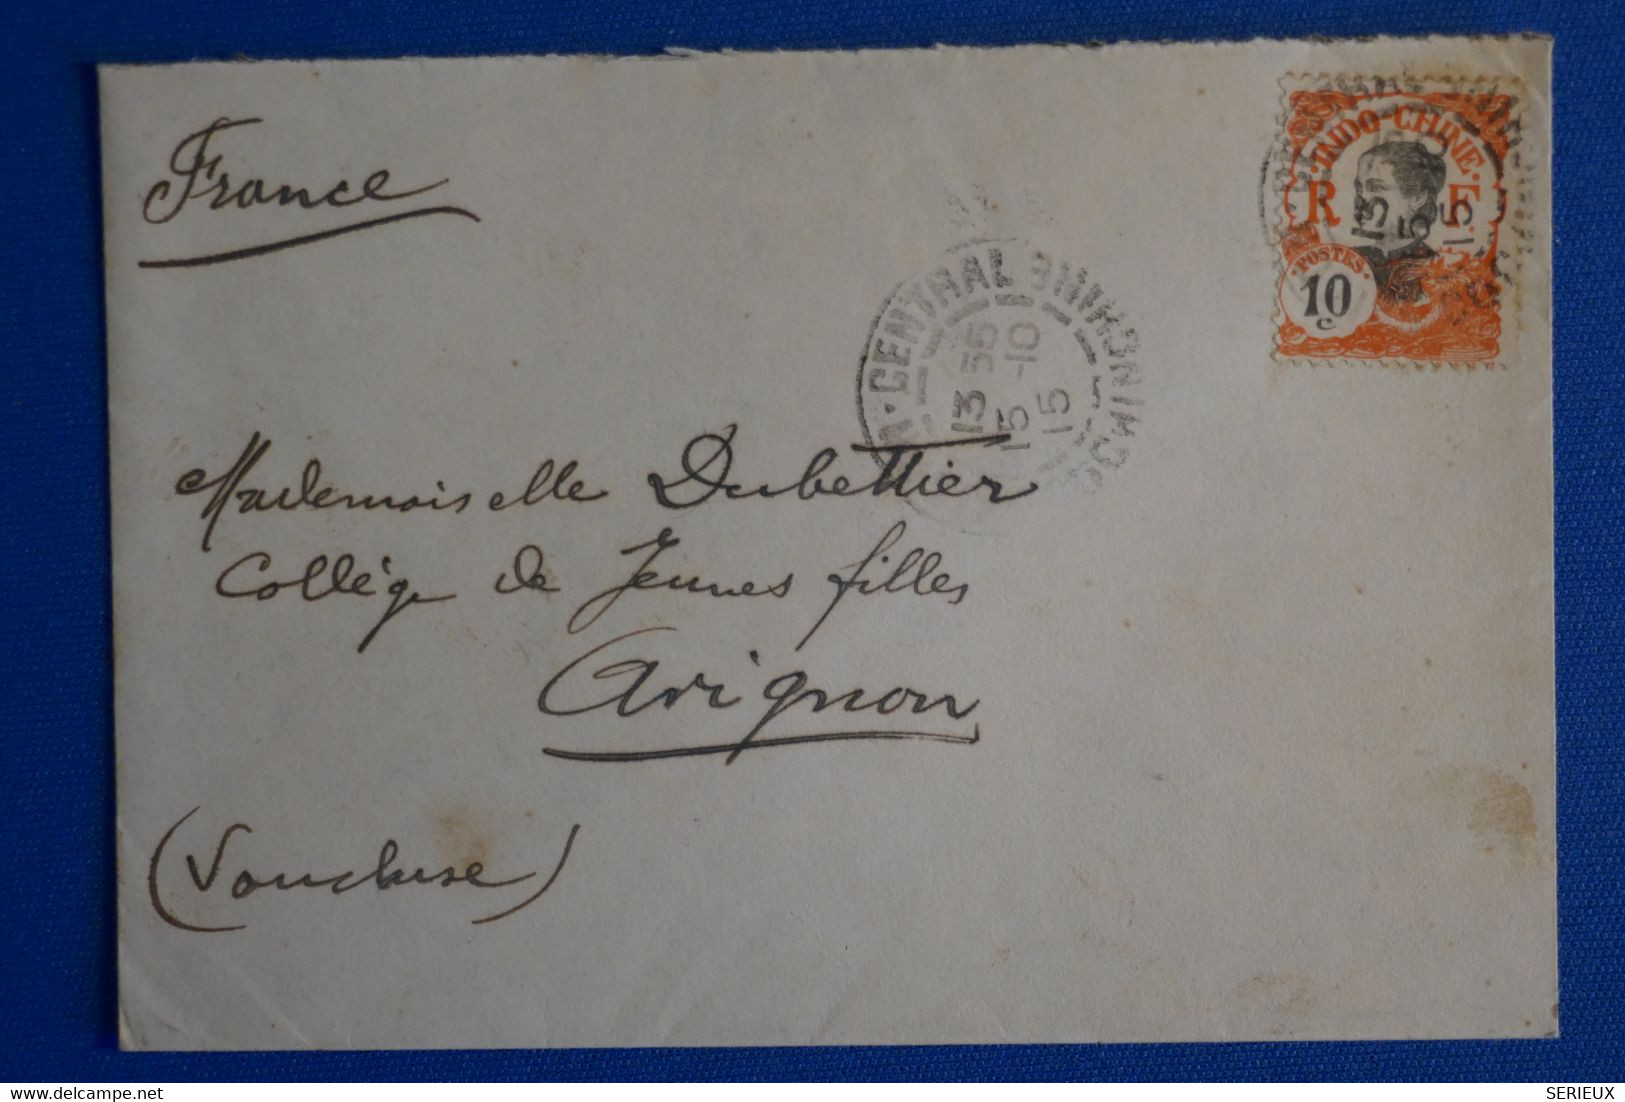 France
INDO-CHINE
R F
POSTES
10
c
13
15
15
CENTRAL COCHINCHINE
13 55
15 -10
15
Mademoiselle Dubettier
Collège de Jeunes filles
Avignon
(Vaucluse)
SERIEUX
delcampe.net